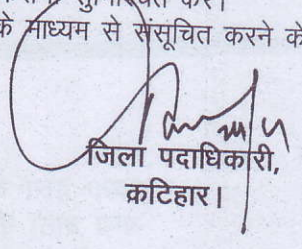 के माध्यम से संसूचित करने के
जिला पदाधिकारी,
कटिहार।